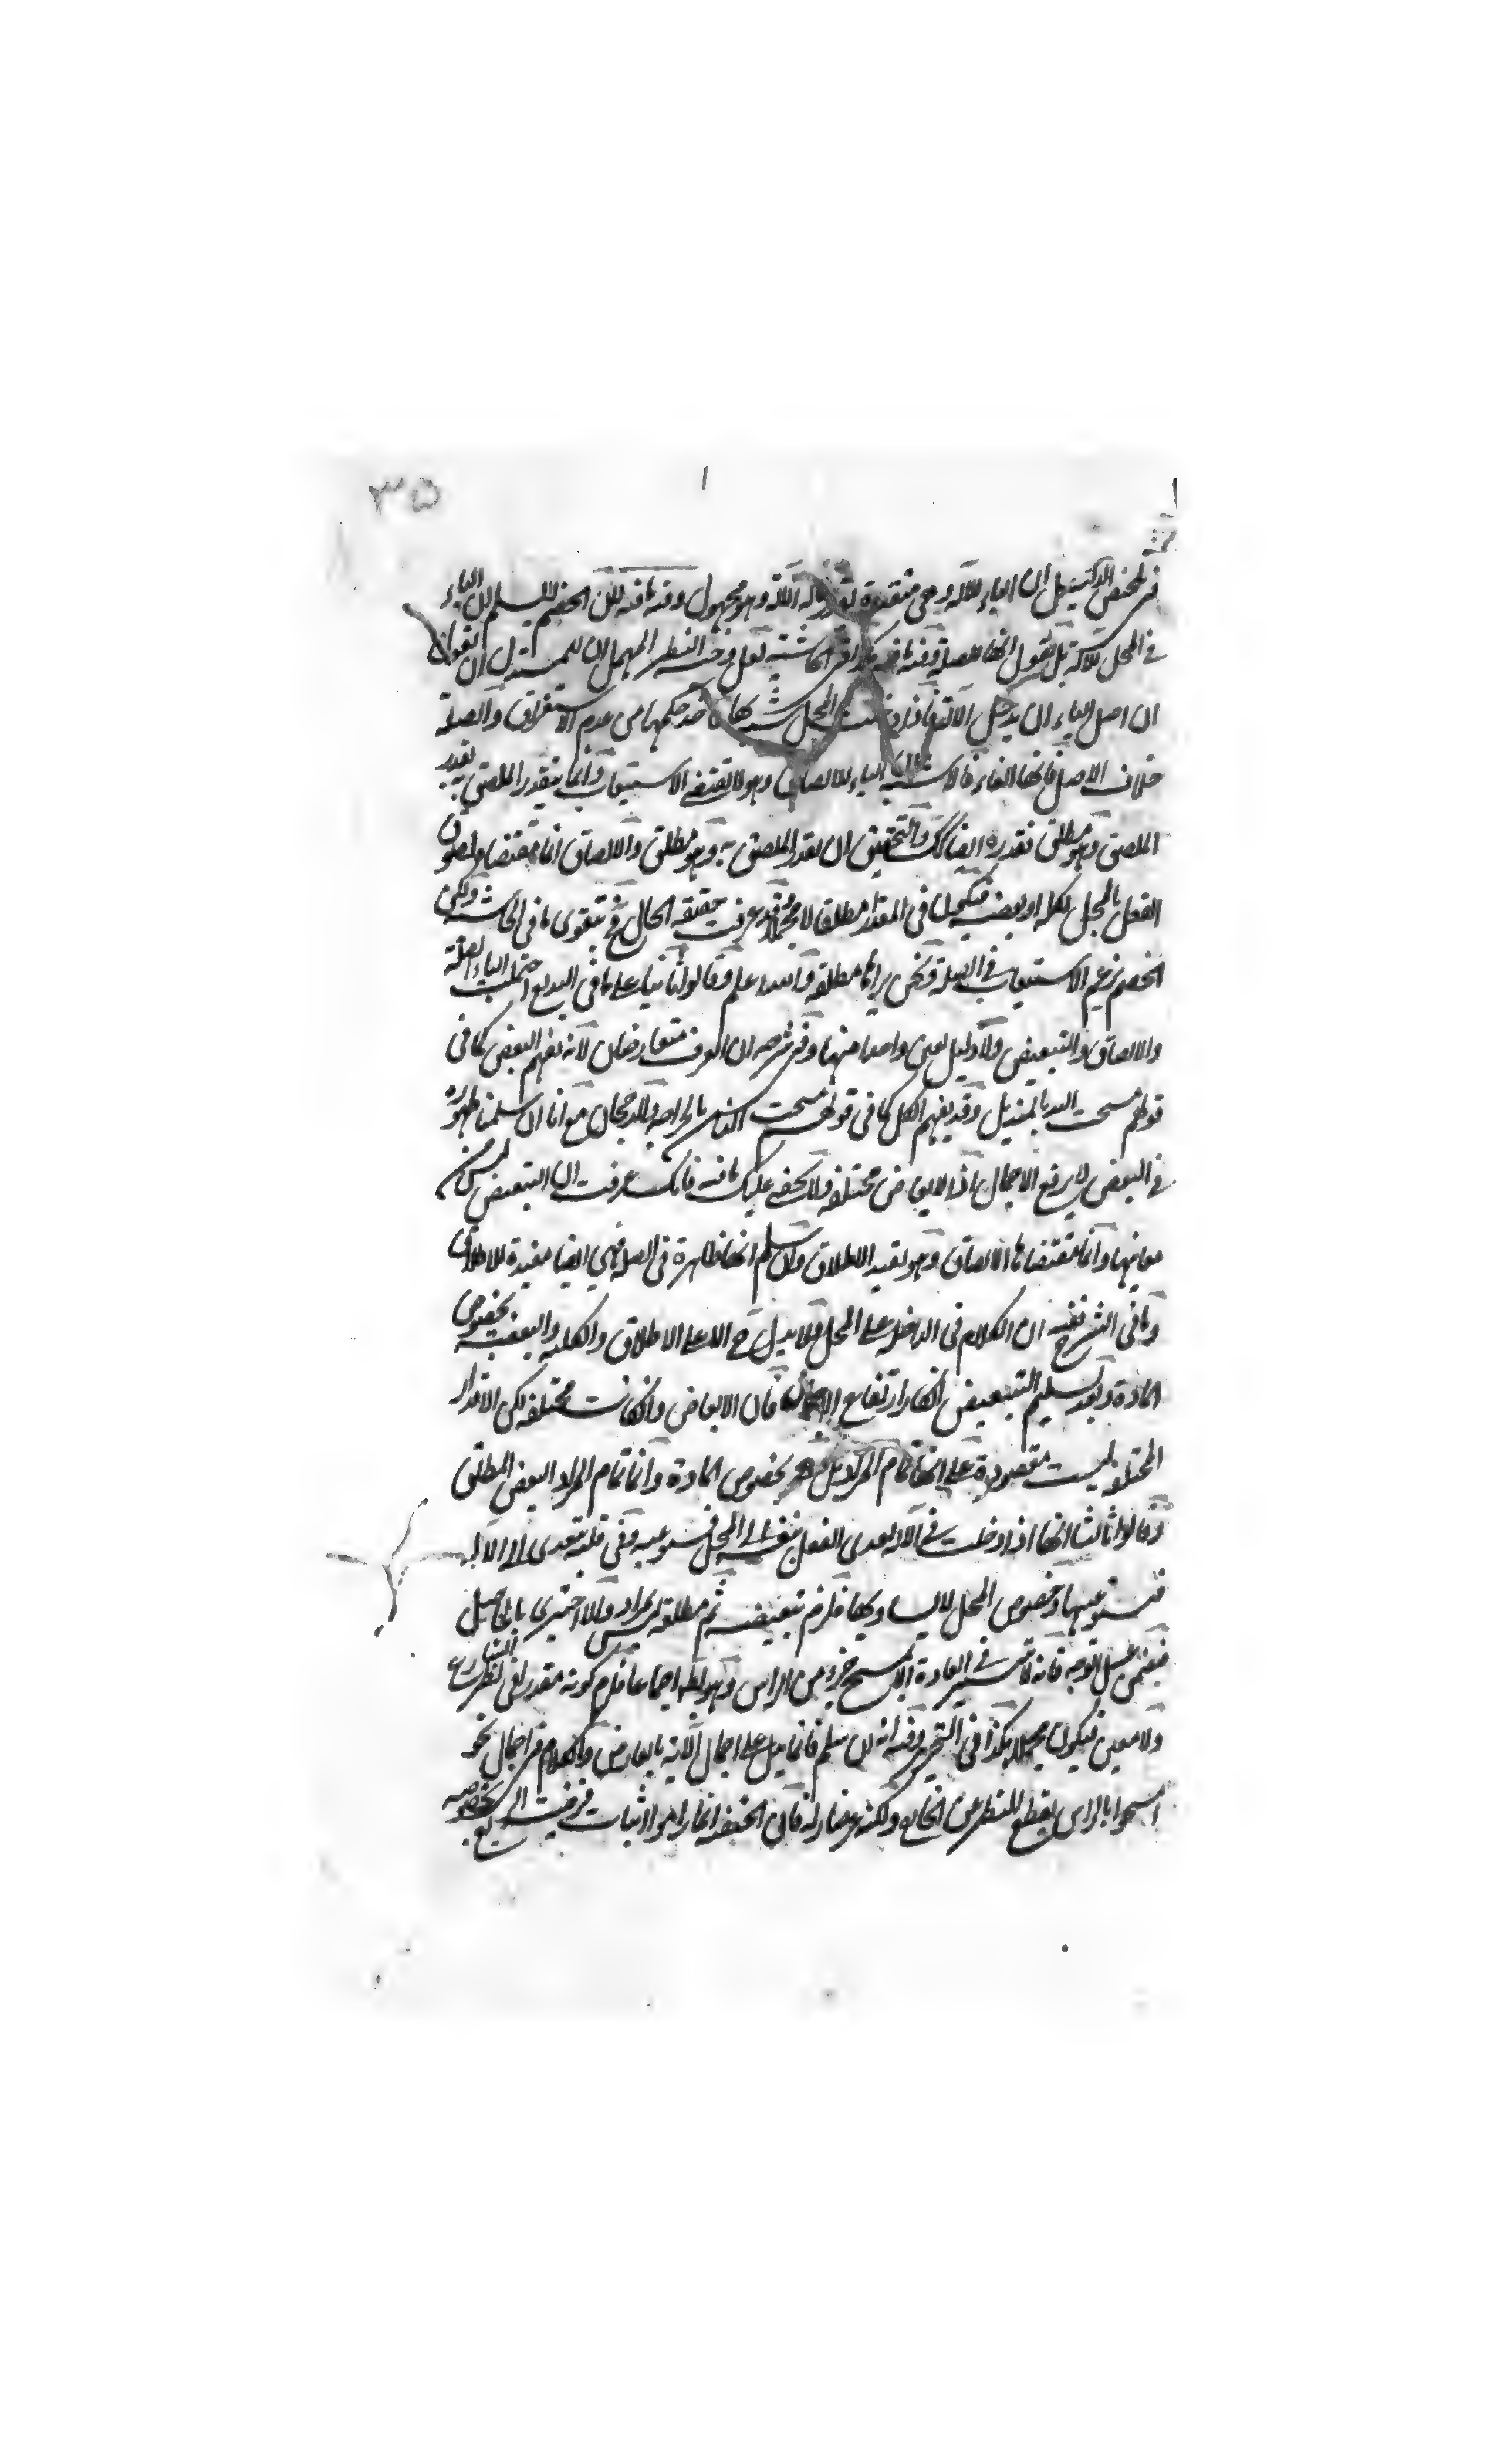 ٣٥
ان الباء للآلة وهي متقدرة بقدر الآلة وهو مجهول وفيه مافيه لان الخصم لا يسلم ان الباء
في المحل للآلة بل يقول انها صلة وفيه مافيه لان للمستدل ان يقول
ان اصل الباء ان يدخل الآلة فاذا دخلت المحل شبه بها فاخذ حكمها من عدم الاستغراق والصلة
خلاف الاصل فانها الغاء فالاشبه ان الباء للالصاق وهو لا يقتضي الاستيعاب وانما يتقدر الملصق به بقدر
الملصق وهو مطلق فقدره ايضا كك والتحقيق ان بقدر الملصق به وهو مطلق والالصاق انما مقتضاه لصوق
الفعل بالمحل بكله او ببعضه فيكون في المقدار مطلقا لا مجملا وقد عرفت حقيقة الحال وح يتقوى ما في الحاشية ولكن
الخصم يزعم الاستيعاب في الصلة ونحن نراها مطلقة والله اعلم وقالوا ثانيا على ما في البديع احتملت الباء الصلة
والالصاق والتبعيض ولا دليل يعين واحدا منها وفي شرحه ان العرف متعارضان لانه يفهم البعض كما في
قولهم مسحت اليد بالمنديل وقد يفهم الكل كما في قولهم مسحت مع انا ان سلمنا ظهوره
في البعض لا يرفع الاجمال اذ الابعاض مختلفة ولا يخفى عليك مافيه فانك عرفت ان التبعيض ليس من
معانيها وانما مقتضاها الالصاق وهو يفيد الاطلاق وان سلم انها ظاهرة في الصلة فهي ايضا مفيدة للاطلاق
وما في الشرح ففيه ان الكلام في الداخلة على المحل ولا يدل ح الا على الاطلاق والكلية والبعضية بخصوص
المادة وبعد تسليم التبعيض انكار ارتفاع الاجمال فان الابعاض وان كانت مختلفة لكن الاقدار
المختلفة ليست مقصودة على انها تمام المراد بل بخصوص المادة وانما تمام المراد البعض المطلق
وقالوا ثالثا انها اذا دخلت في الآلة يعدى الفعل بنفسه الى المحل فيستوعبه وفي قلبه يتعدى الى الآلة
فيستوعبها وخصوص المحل لا يساويها فلزم تبعيضه ثم مطلقه ليس بمراد والا اجتزى بالحاصل
في ضمن غسل الوجه فانه لا يتيسر في العادة الا بمسح جزء من الراس وهو باطل اجماعا فلزم كونه مقدرا في نظر الشارع
ولا معين فيكون مجملا هكذا في التحرير وفيه انه ان سلم فانما يدل على اجمال الآية بالعارض والكلام في اجمال نحو
امسحوا بالراس بقطع النظر عن الخارج